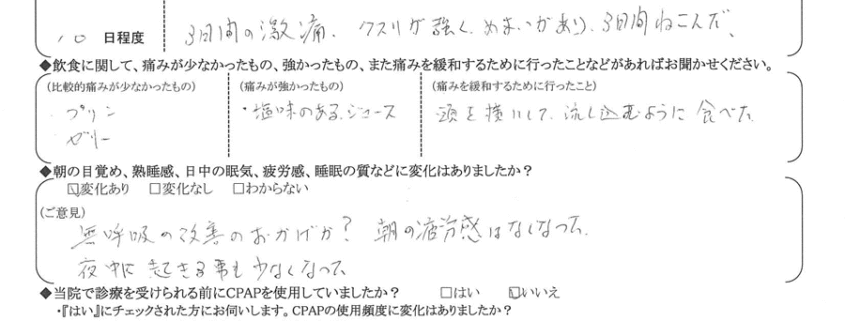 10 日程度 3日間の激痛、クスリが強く、めまいがあり、3日間ねこんだ、
◆飲食に関して、痛みが少なかったもの、強かったもの、また痛みを緩和するために行ったことなどがあればお聞かせください。
(比較的痛みが少なかったもの) (痛みが強かったもの) (痛みを緩和するために行ったこと)
・プリン ・塩味のあるジュース 頭を横にして、流し込むように食べた
ゼリー
◆朝の目覚め、熟睡感、日中の眠気、疲労感、睡眠の質などに変化はありましたか?
☑変化あり □変化なし □わからない
(ご意見)
無呼吸の改善のおかげか? 朝の疲労感はなくなった.
夜中に起きる事も少なくなった
◆当院で診療を受けられる前にCPAPを使用していましたか? □はい ☑いいえ
・『はい』にチェックされた方にお伺いします。CPAPの使用頻度に変化はありましたか?